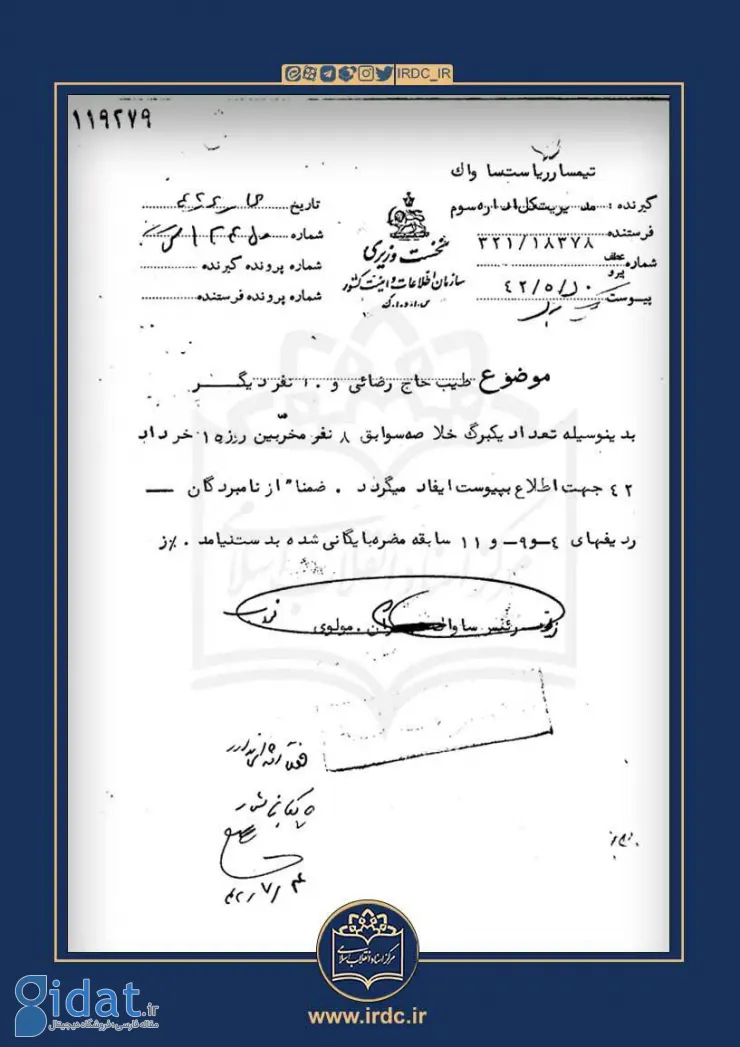 IRDC_IR
۱۱۹۲۷۹
تیمسار ریاست ساواک
گیرنده : مدیریت کل اداره سوم
فرستنده
شماره عطف پیرو ۳۲۱/۱۸۳۷۸
پیوست ۴۲/۵/۱۰
نخست وزیری
سازمان اطلاعات و امنیت کشور
س.ا.و.ا.ک
تاریخ
شماره
شماره پرونده گیرنده
شماره پرونده فرستنده
موضوع طیب حاج رضائی و ۱۰ نفر دیگر
بدینوسیله تعداد یکبرگ خلاصه سوابق ۸ نفر مخربین روز ۱۵ خرداد
۴۲ جهت اطلاع بپیوست ایفاد میگردد . ضمنا" از نامبردگان —
ردیفهای ۴-و۹- و ۱۱ سابقه مضره بایگانی شده بدست نیامد .
رئیس ساواک تهران . مولوی
بایگانی شود
۴۲/۷/۴
مرکز اسناد انقلاب اسلامی
مرکز اسناد انقلاب اسلامی
www.irdc.ir
gidat.ir
مقاله فارسی؛ فروشگاه دیجیتال